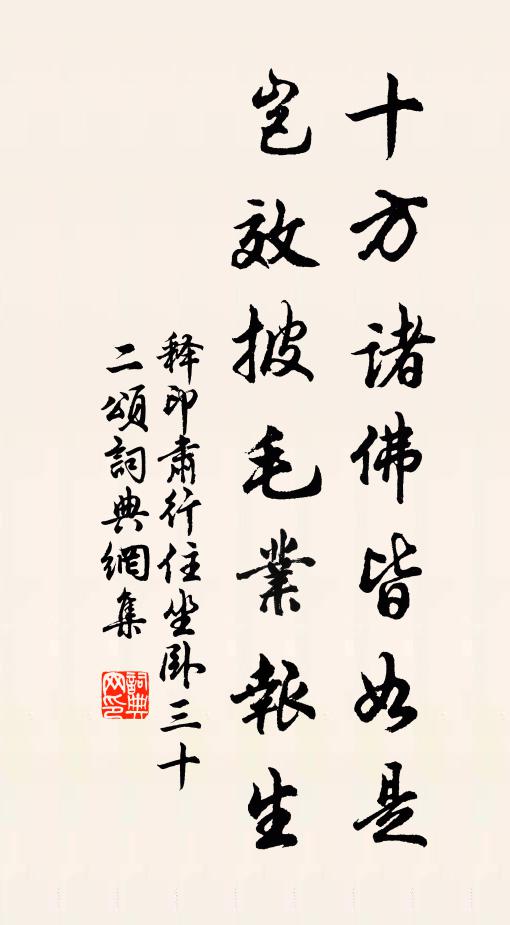 十方诸佛皆如是
岂效披毛業報生
释印肃行住坐卧三十
二頌詞典網集
詞典網印